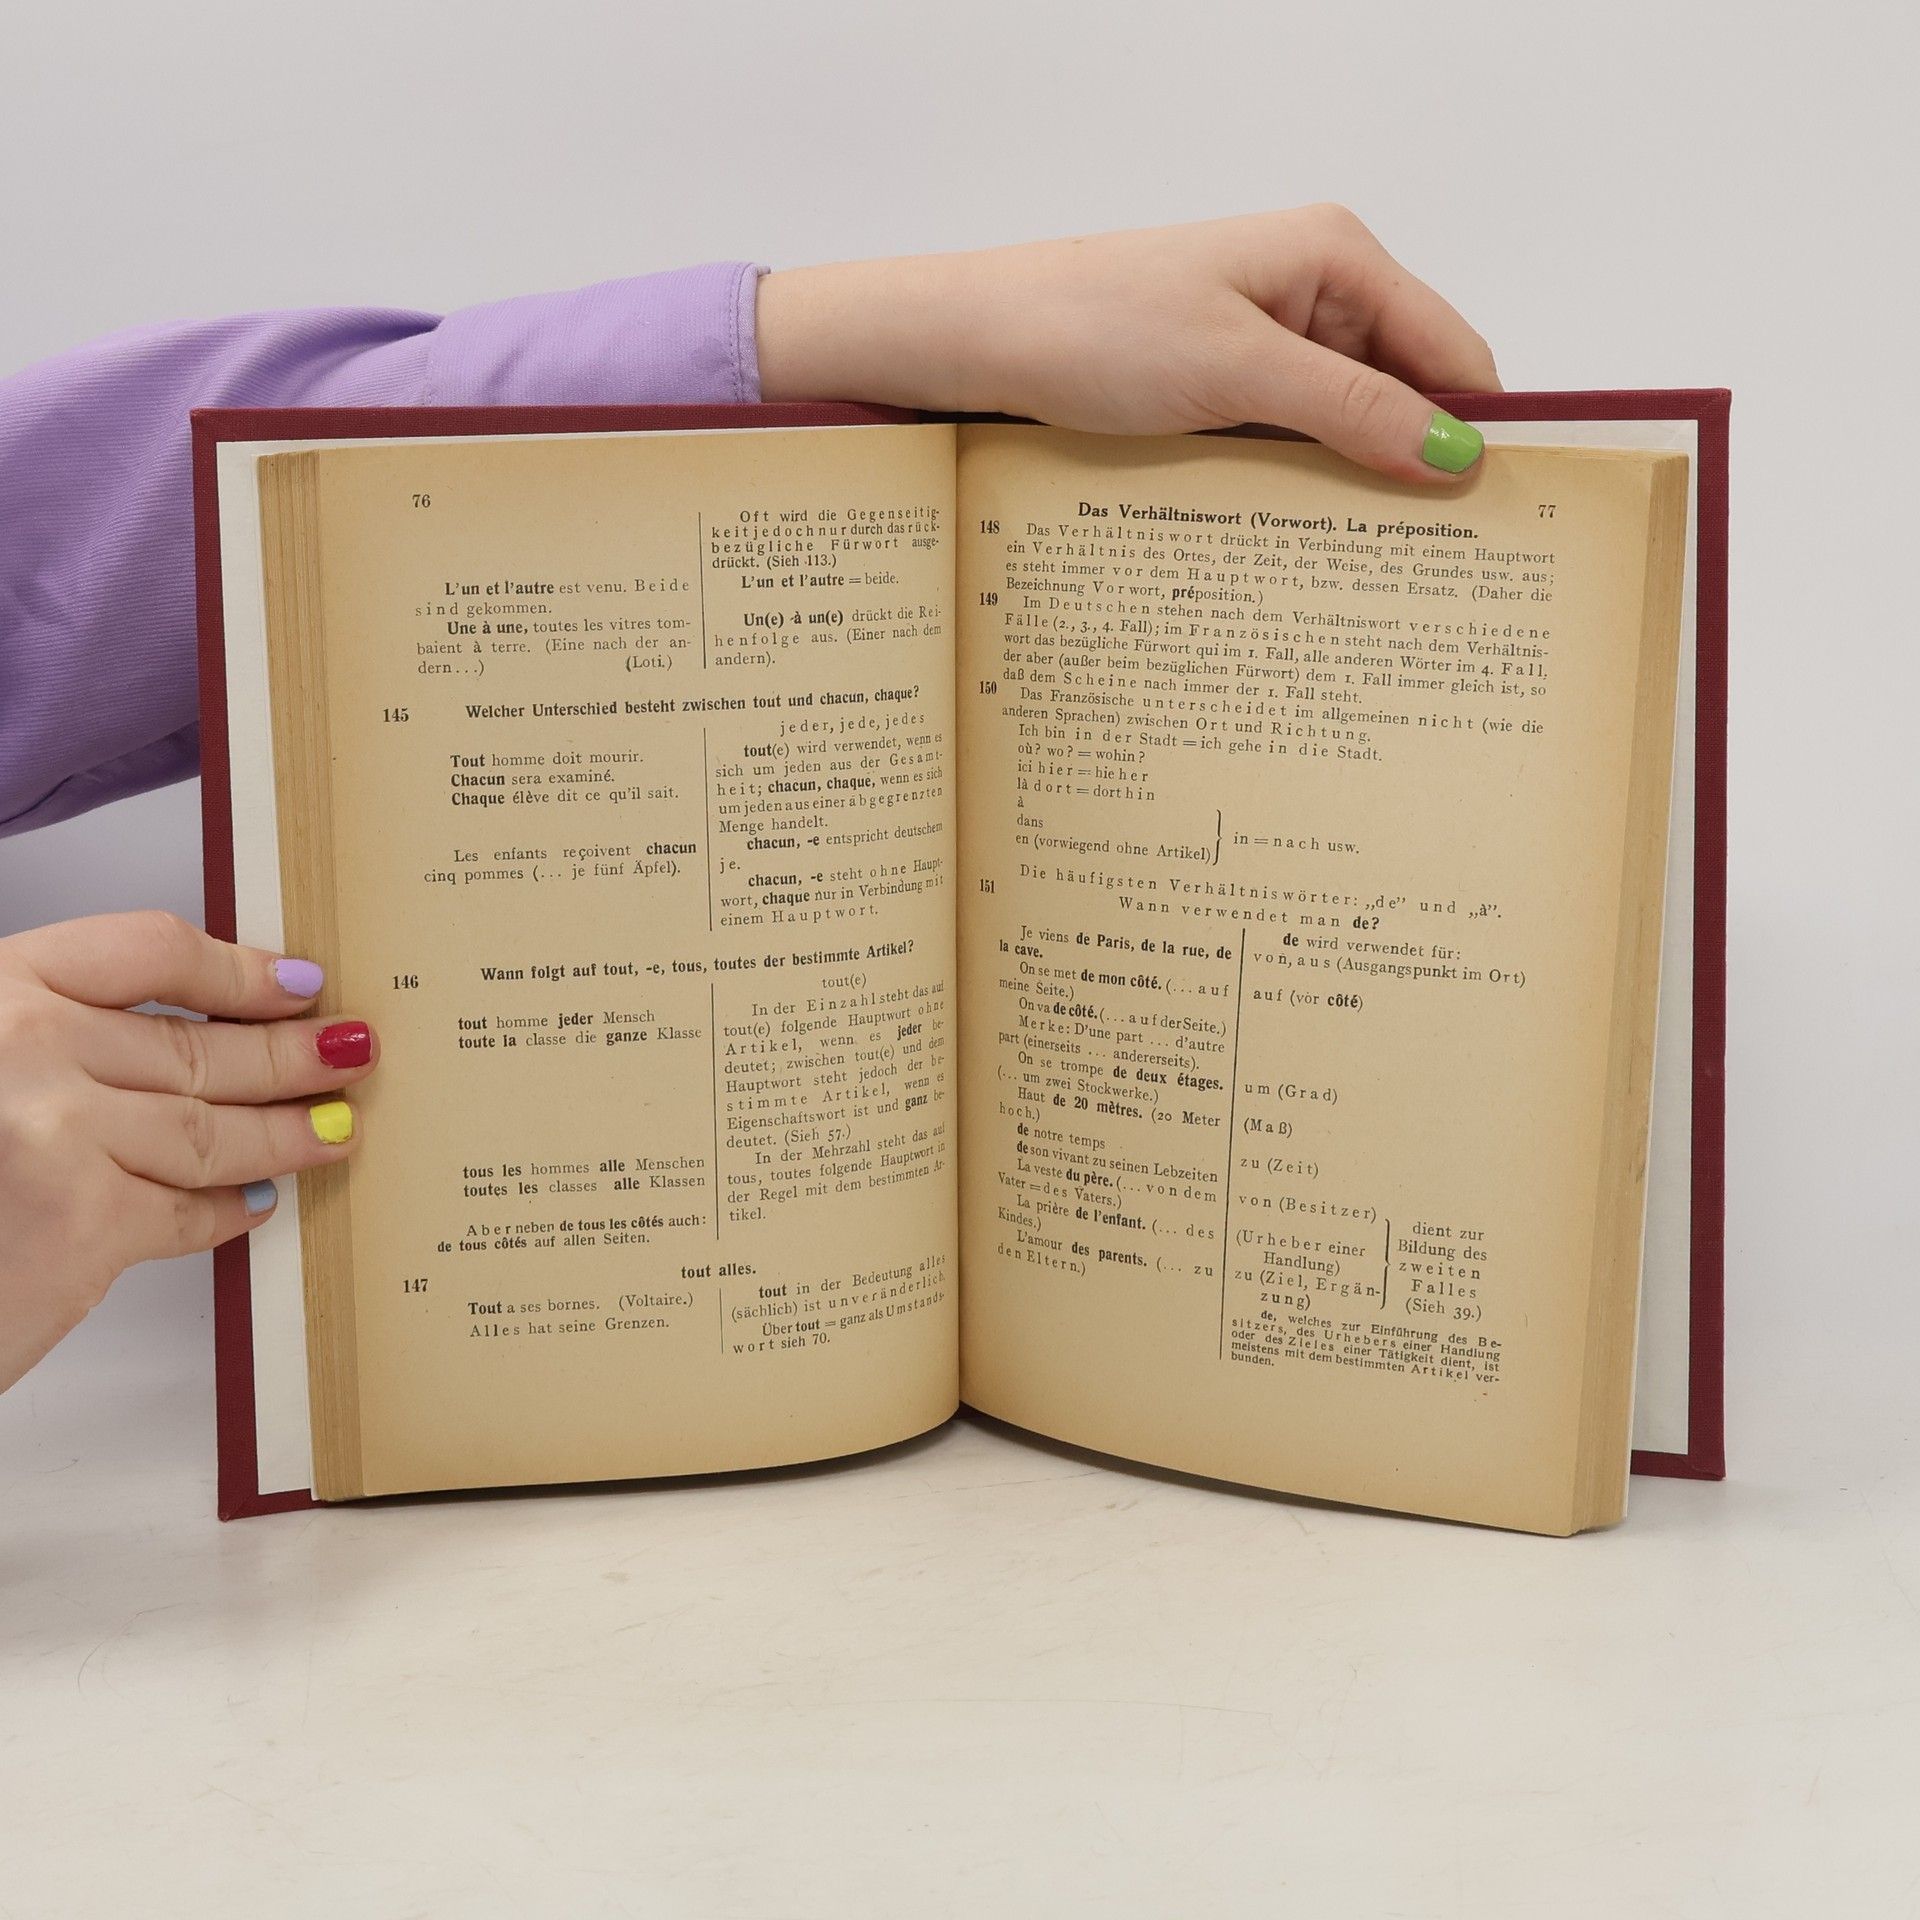 76
Oft wird die Gegenseitig-
keit jedoch nur durch das rück-
bezügliche Fürwort ausge-
drückt. (Sieh 113.)
L'un et l'autre est venu. Beide
sind gekommen.
L'un et l'autre = beide.
Une à une, toutes les vitres tom-
baient à terre. (Eine nach der an-
dern...) (Loti.)
Un(e) à un(e) drückt die Rei-
henfolge aus. (Einer nach dem
andern).
145 Welcher Unterschied besteht zwischen tout und chacun, chaque?
jeder, jede, jedes
Tout homme doit mourir.
Chacun sera examiné.
Chaque élève dit ce qu'il sait.
tout(e) wird verwendet, wenn es
sich um jeden aus der Gesamt-
heit; chacun, chaque, wenn es sich
um jeden aus einer abgegrenzten
Menge handelt.
Les enfants reçoivent chacun
cinq pommes (... je fünf Äpfel).
chacun, -e entspricht deutschem
je.
chacun, -e steht ohne Haupt-
wort, chaque nur in Verbindung mit
einem Hauptwort.
146 Wann folgt auf tout, -e, tous, toutes der bestimmte Artikel?
tout(e)
tout homme jeder Mensch
toute la classe die ganze Klasse
In der Einzahl steht das auf
tout(e) folgende Hauptwort ohne
Artikel, wenn es jeder be-
deutet; zwischen tout(e) und dem
Hauptwort steht jedoch der be-
stimmte Artikel, wenn es
Eigenschaftswort ist und ganz be-
deutet. (Sieh 57.)
tous les hommes alle Menschen
toutes les classes alle Klassen
In der Mehrzahl steht das auf
tous, toutes folgende Hauptwort in
der Regel mit dem bestimmten Ar-
tikel.
Aber neben de tous les côtés auch:
de tous côtés auf allen Seiten.
147 tout alles.
Tout a ses bornes. (Voltaire.)
Alles hat seine Grenzen.
tout in der Bedeutung alles
(sächlich) ist unveränderlich.
Über tout = ganz als Umstands-
wort sieh 70.
77
Das Verhältniswort (Vorwort). La préposition.
148 Das Verhältniswort drückt in Verbindung mit einem Hauptwort
ein Verhältnis des Ortes, der Zeit, der Weise, des Grundes usw. aus;
es steht immer vor dem Hauptwort, bzw. dessen Ersatz. (Daher die
Bezeichnung Vorwort, préposition.)
149 Im Deutschen stehen nach dem Verhältniswort verschiedene
Fälle (2., 3., 4. Fall); im Französischen steht nach dem Verhältnis-
wort das bezügliche Fürwort qui im 1. Fall, alle anderen Wörter im 4. Fall,
der aber (außer beim bezüglichen Fürwort) dem 1. Fall immer gleich ist, so
daß dem Scheine nach immer der 1. Fall steht.
150 Das Französische unterscheidet im allgemeinen nicht (wie die
anderen Sprachen) zwischen Ort und Richtung.
Ich bin in der Stadt = ich gehe in die Stadt.
où? wo? = wohin?
ici hier = hieher
là dort = dorthin
à
dans
en (vorwiegend ohne Artikel)
in = nach usw.
151 Die häufigsten Verhältniswörter: „de" und „à".
Wann verwendet man de?
Je viens de Paris, de la rue, de
la cave.
de wird verwendet für:
von, aus (Ausgangspunkt im Ort)
On se met de mon côté. (... auf
meine Seite.)
auf (vor côté)
On va de côté. (... auf der Seite.)
Merke: D'une part ... d'autre
part (einerseits ... andererseits).
On se trompe de deux étages.
(... um zwei Stockwerke.)
um (Grad)
Haut de 20 mètres. (20 Meter
hoch.)
(Maß)
de notre temps
de son vivant zu seinen Lebzeiten
zu (Zeit)
La veste du père. (... von dem
Vater = des Vaters.)
von (Besitzer)
La prière de l'enfant. (... des
Kindes.)
(Urheber einer
Handlung)
L'amour des parents. (... zu
den Eltern.)
zu (Ziel, Ergän-
zung)
dient zur
Bildung des
zweiten
Falles
(Sieh 39.)
de, welches zur Einführung des Be-
sitzers, des Urhebers einer Handlung
oder des Zieles einer Tätigkeit dient, ist
meistens mit dem bestimmten Artikel ver-
bunden.